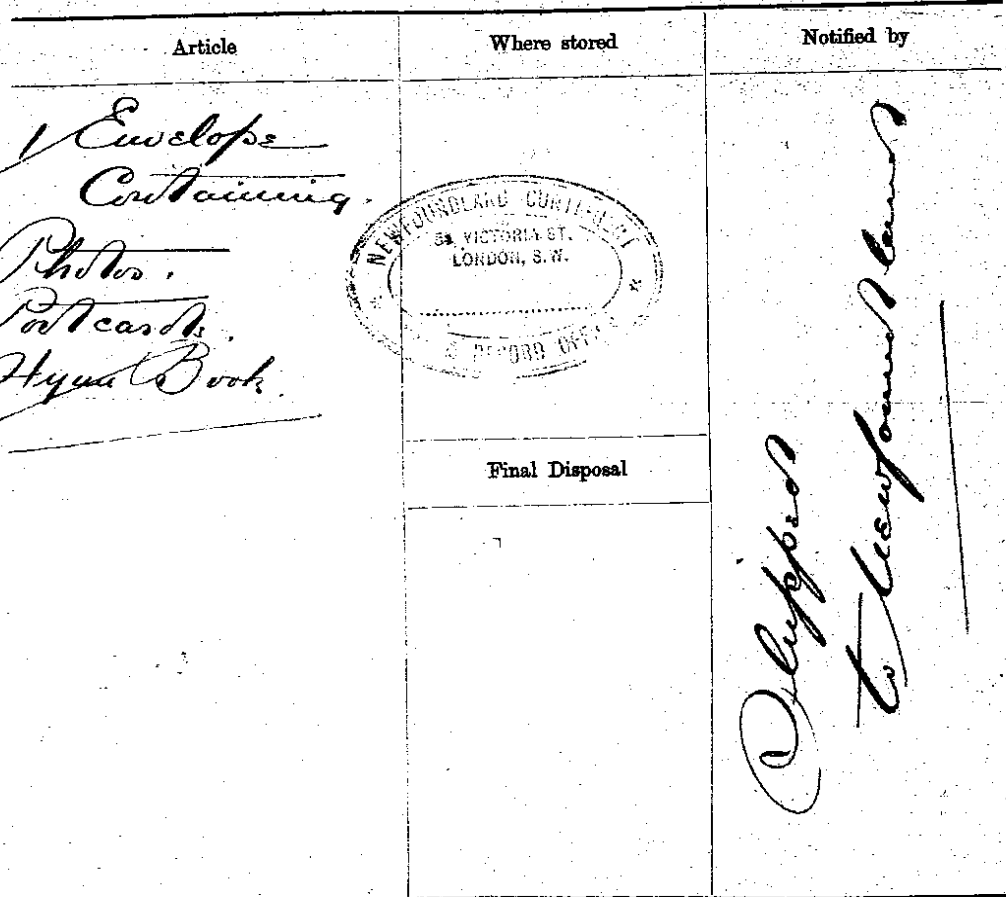 Article
Where stored
Notified by
1 Envelope
Containing.
Photos.
Postcards.
Hymn Book.
NEWFOUNDLAND CONTINGENT
VICTORIA ST.
LONDON, S.W.
* RECORD OFFICE *
Final Disposal
Shipped
to Newfoundland